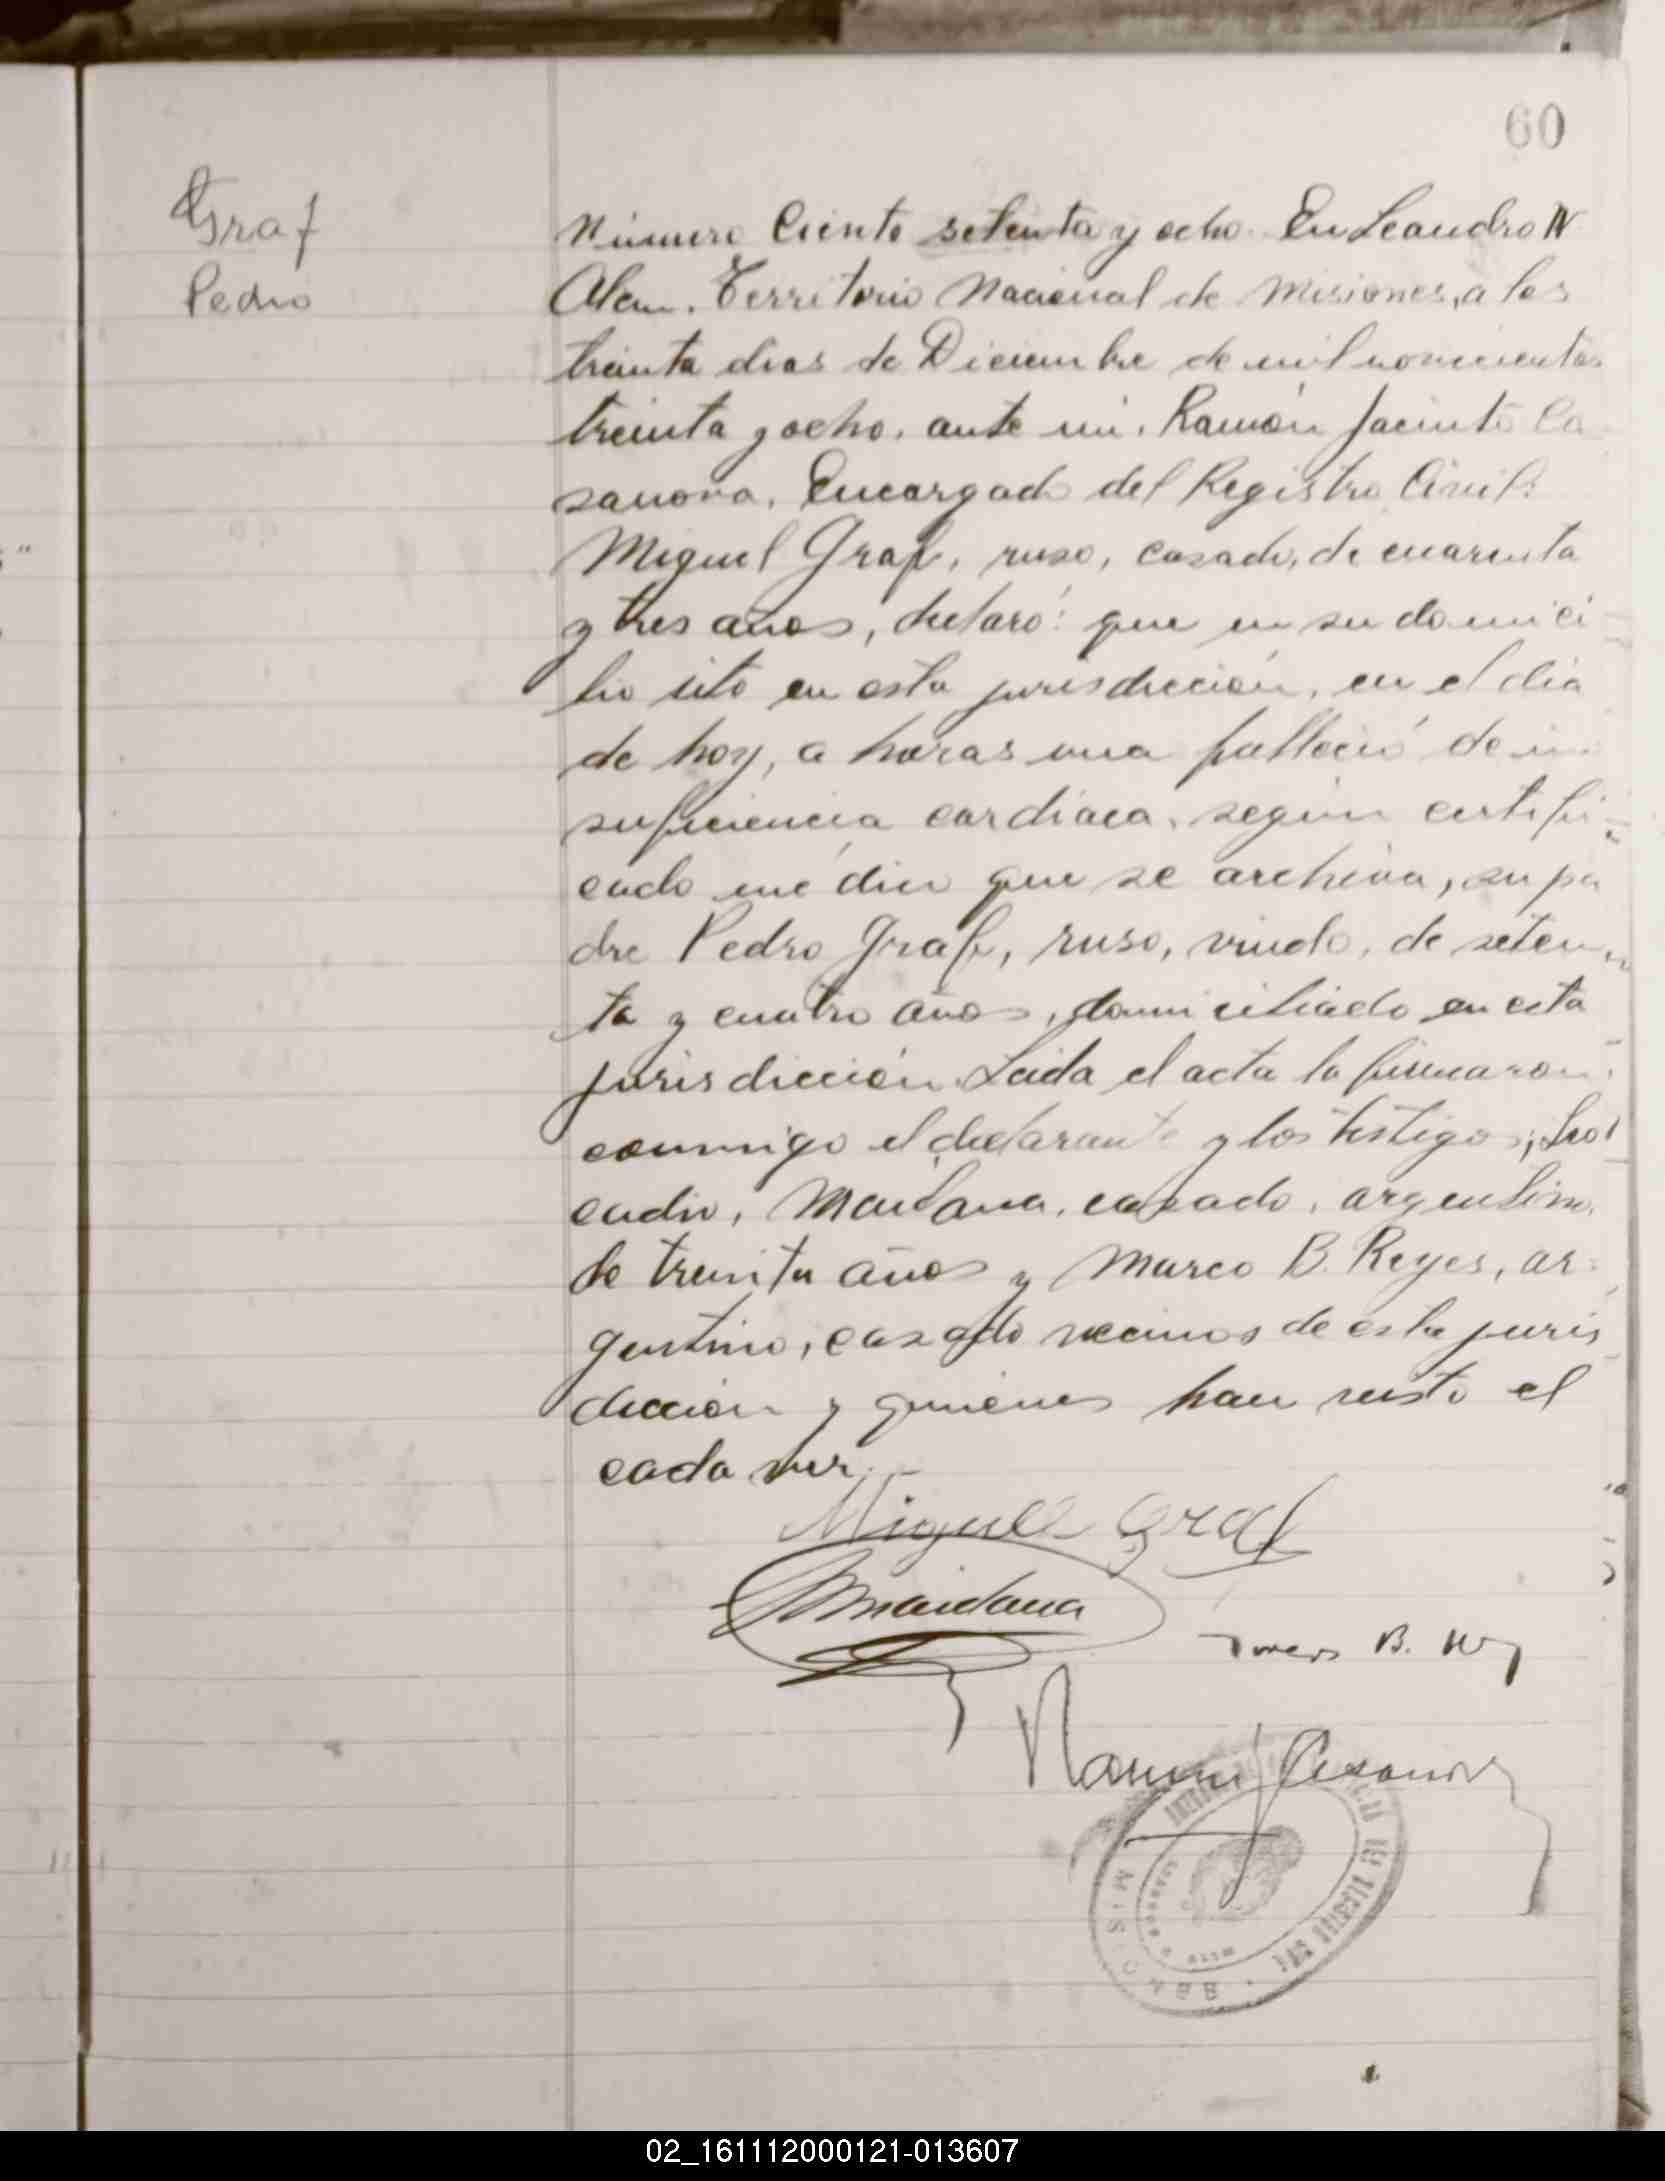 60
Graf
Pedro
Número Ciento setenta y ocho. En Leandro N
Alem. Territorio Nacional de Misiones, a los
treinta días de Diciembre de mil novecientos
treinta y ocho, ante mi, Ramón Jacinto Ca
sanova, Encargado del Registro Civil:
Miguel Graf, ruso, casado, de cuarenta
y tres años, declaró: que en su domici
lio sito en esta jurisdicción, en el día
de hoy, a horas una falleció de in
suficiencia cardíaca, según certifi
cado médico que se archiva, su pa
dre Pedro Graf, ruso, viudo, de seten
ta y cuatro años, domiciliado en esta
jurisdicción. Leida el acta la firmaron
conmigo el declarante y los testigos;
cadio, Maidana, casado, argentino,
de treinta años y Marco B. Reyes, ar=
gentino, casado vecinos de esta juris
dicción y quienes han visto el
cadaver.
Miguel Graf
Maidana
B.
Ramón J Casanova
MISIONES
02_161112000121-013607